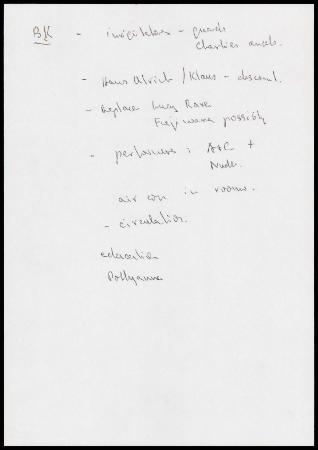 BK - invigilators - guards
Charlies angels.
- Hans Ulrich / Klaus -
- Replace Lucy Rose
Fujiwara possibly
- performers : A+C +
Nude.
air con in rooms.
- circulation.
education
Pollyanna